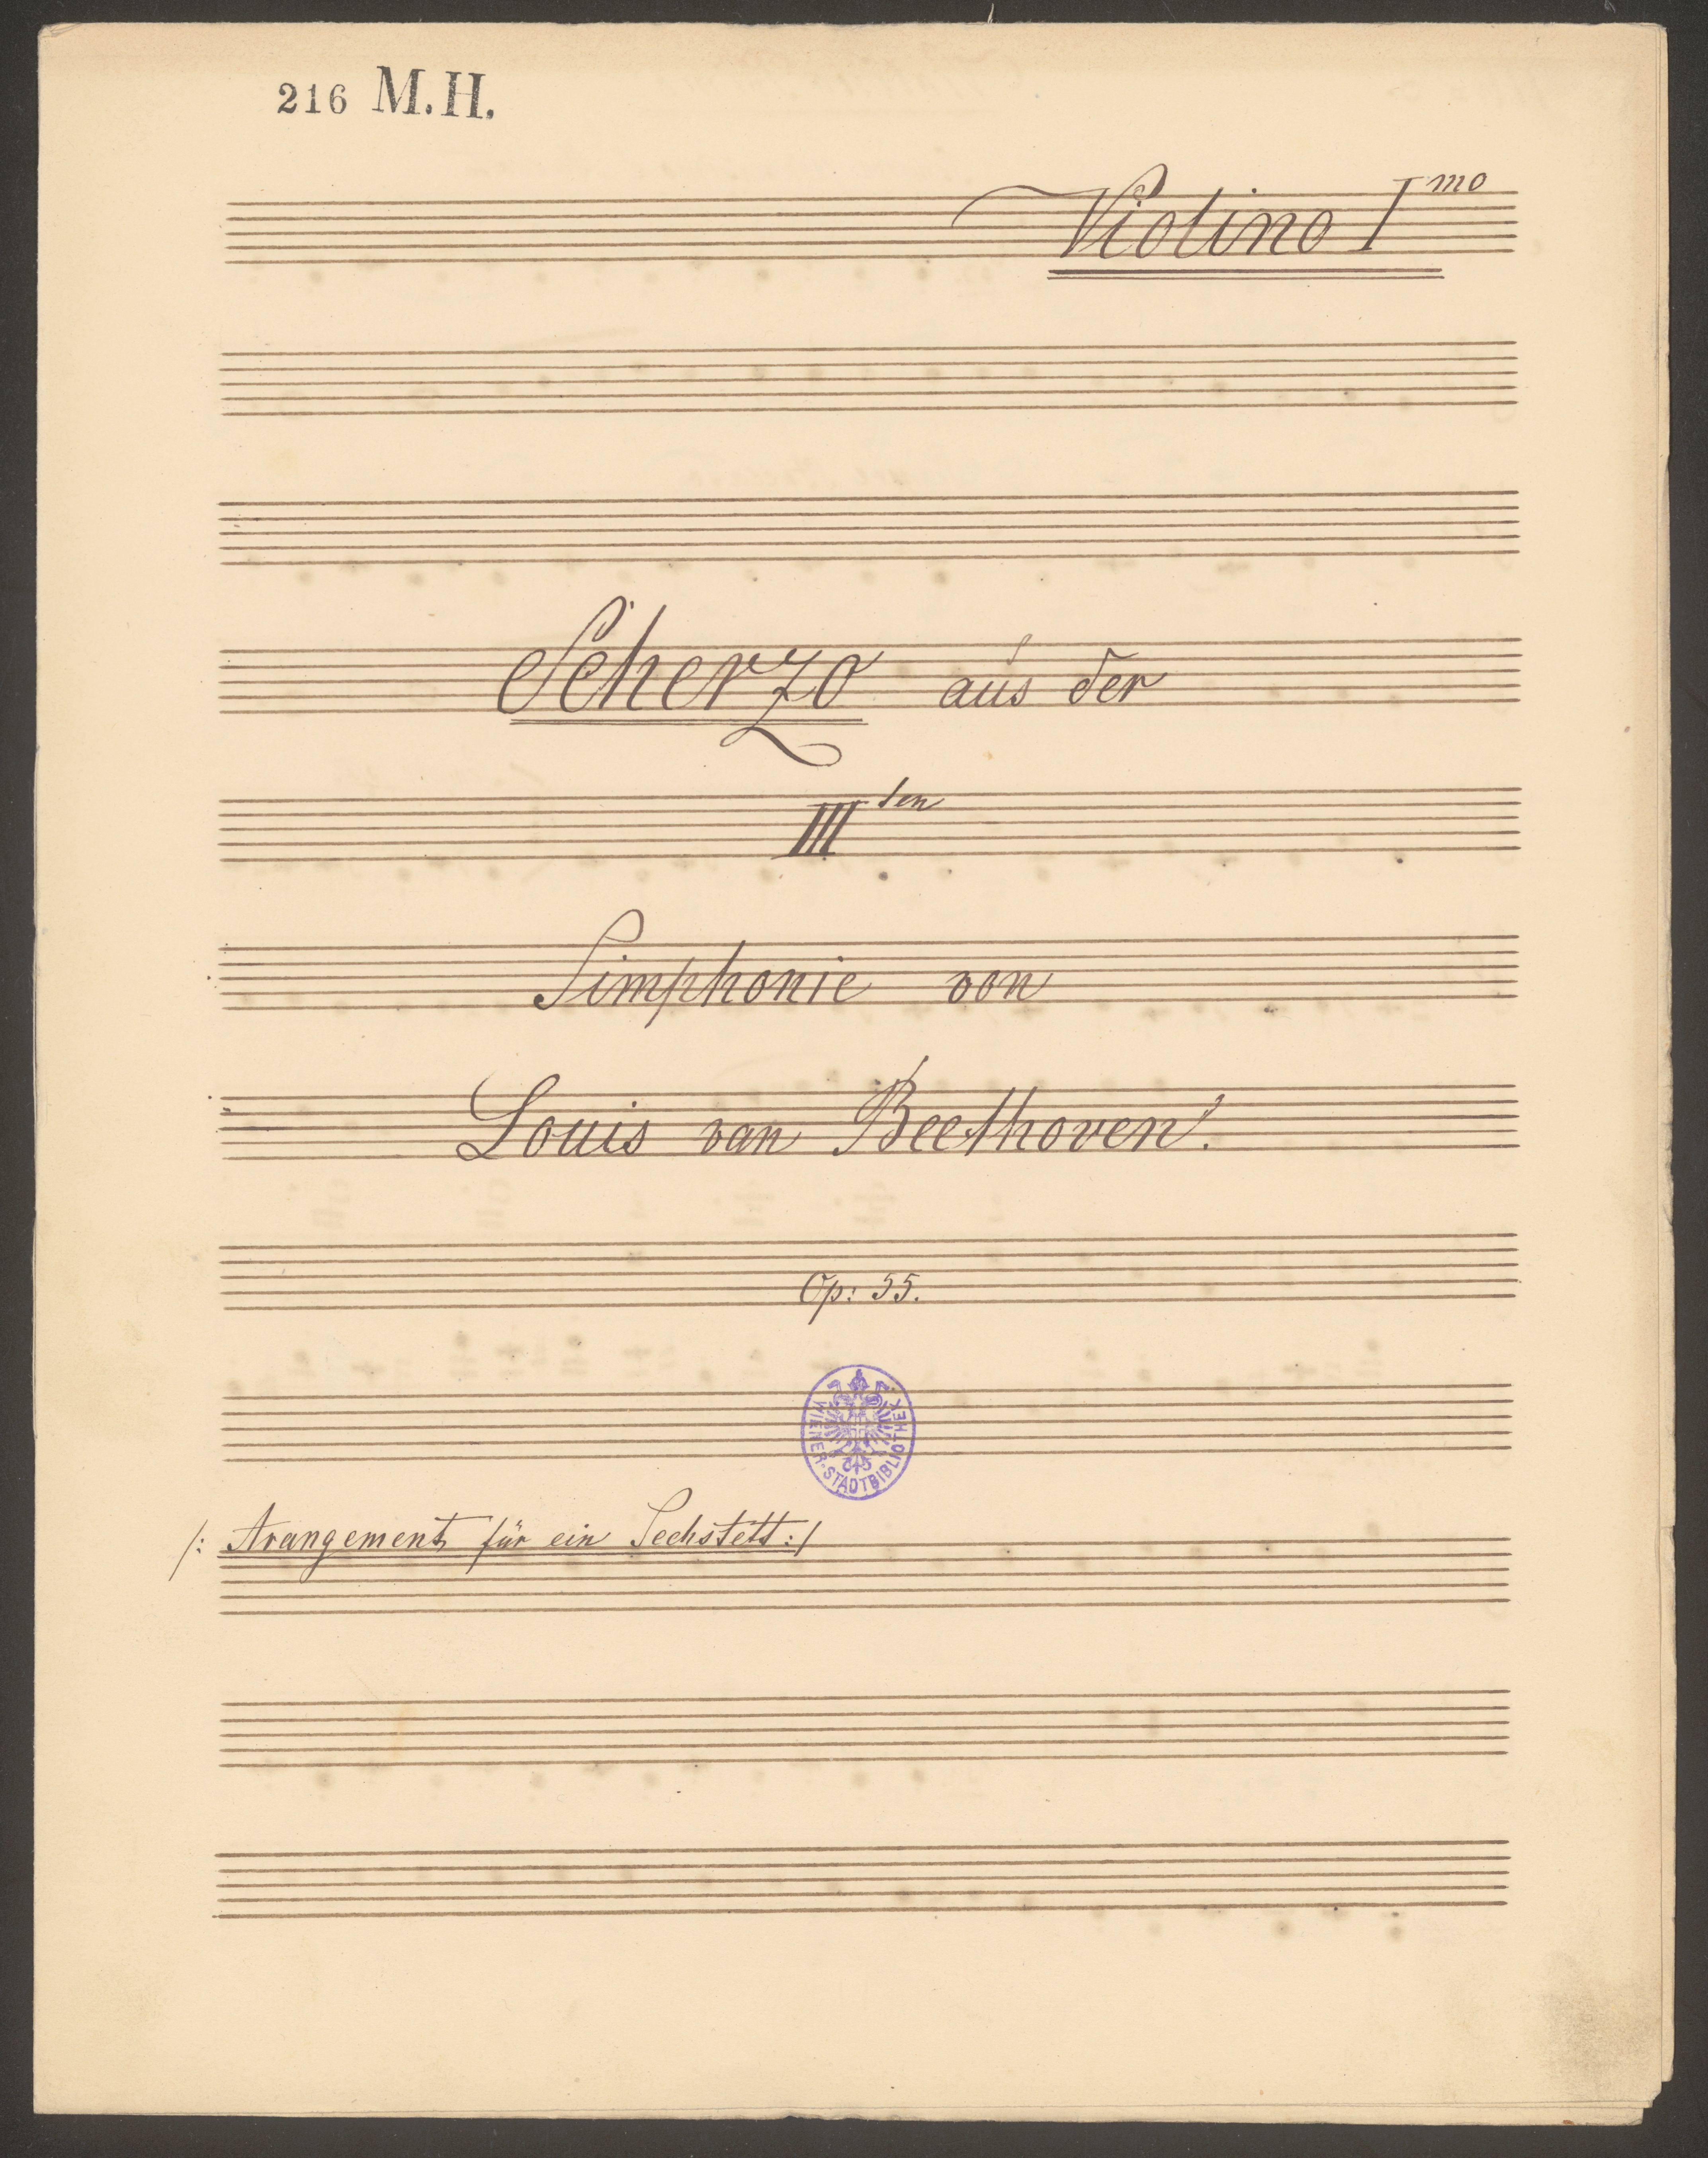 216 M.H.
Violino I mo
Scherzo aus der
III ten
Simphonie von
Louis van Beethoven.
Op: 55.
WIENER-STADTBIBLIOTHEK
/: Arangement für ein Sechstett :/